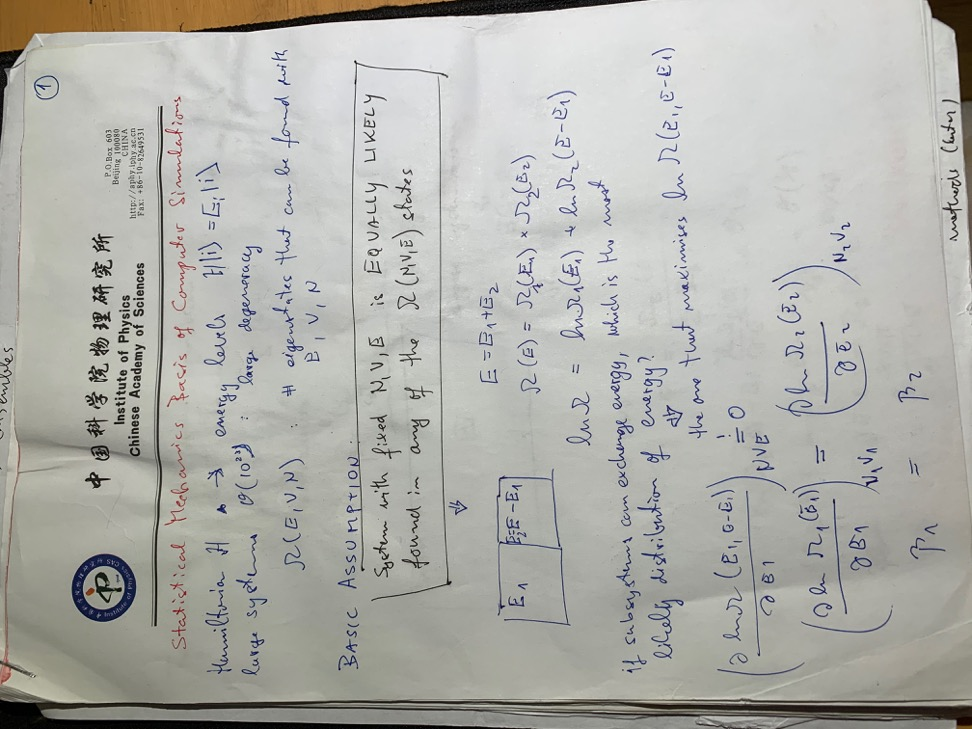 ①
中国科学院物理研究所
Institute of Physics
Chinese Academy of Sciences
P.O.Box 603
Beijing 100080
CHINA
http://aphy.iphy.ac.cn
Fax: +86-10-82649531
Statistical Mechanics Basis of Computer Simulations
Hamiltonian H → energy levels H|i⟩ = Ei|i⟩
large systems O(10²³) : large degeneracy
Ω(E,V,N) : # eigenstates that can be found with
E, V, N
BASIC ASSUMPTION
System with fixed N,V,E is EQUALLY LIKELY
found in any of the Ω(N,V,E) states
⇓
E1
E2=E-E1
E = E1+E2
Ω(E) = Ω1(E1) × Ω2(E2)
lnΩ = lnΩ1(E1) + lnΩ2(E-E1)
if subsystems can exchange energy, which is the most
likely distribution of energy?
⇓
the one that maximises ln Ω(E1,E-E1)
(∂ lnΩ(E1,E-E1) / ∂E1)NVE != 0
(∂ ln Ω1(E1) / ∂E1)N1V1 = (∂ ln Ω2(E2) / ∂E2)N2V2
β1 = β2
methods (later)